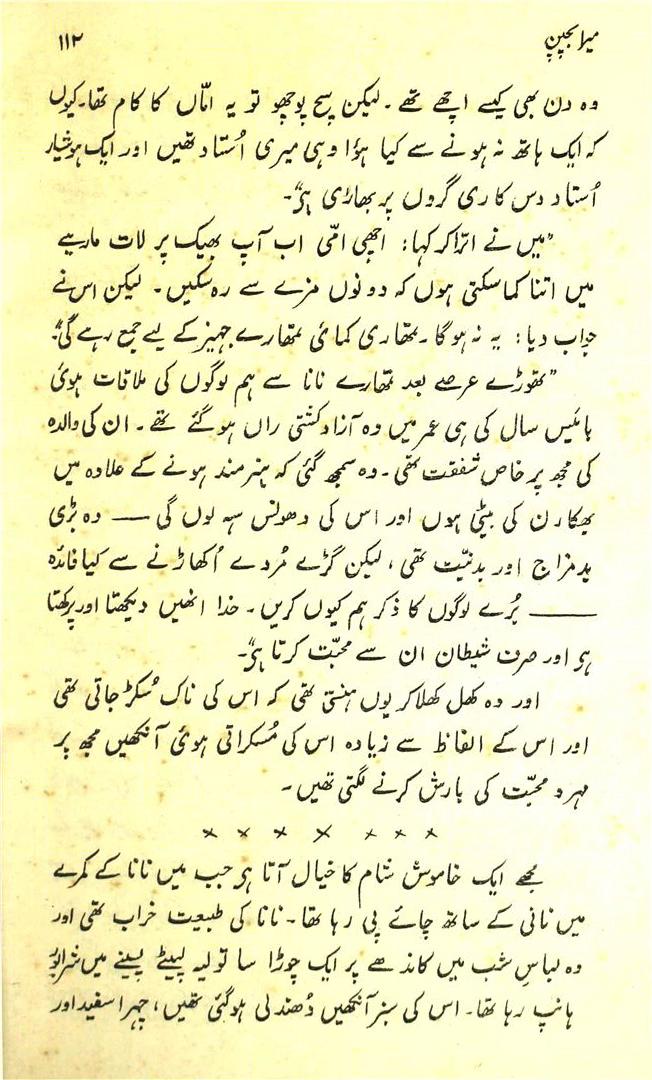 میرا بچپن ۱۱۲
وہ دن بھی کیسے اچھے تھے۔ لیکن سچ پوچھو تو یہ امّاں کا کام تھا۔ کیوں
کہ ایک ہاتھ نہ ہونے سے کیا ہؤا وہی میری اُستاد تھیں اور ایک ہوشیار
اُستاد دس کاری گروں پر بھاری ہی"۔
"میں نے اتراکر کہا: اچھی امّی اب آپ بھیک پر لات ماریے
میں اتنا کما سکتی ہوں کہ دونوں مزے سے رہ سکیں۔ لیکن اس نے
جواب دیا: یہ نہ ہوگا۔ تمھاری کمائ تمھارے جہیز کے لیے جمع رہے گی"۔
"تھوڑے عرصے بعد تمھارے نانا سے ہم لوگوں کی ملاقات ہوئ
بائیس سال کی ہی عمر میں وہ آزاد کشتی راں ہوگئے تھے۔ ان کی والدہ
کی مجھ پر خاص شفقت تھی۔ وہ سمجھ گئی کہ ہنرمند ہونے کے علاوہ میں
بھکارن کی بیٹی ہوں اور اس کی دھونس سہہ لوں گی —— وہ بڑی
بدمزاج اور بدنیّت تھی، لیکن گڑے مُردے اُکھاڑنے سے کیا فائدہ
—— بُرے لوگوں کا ذکر ہم کیوں کریں۔ خدا انھیں دیکھتا اور پرکھتا
ہی اور صرف شیطان ان سے محبّت کرتا ہی"۔
اور وہ کھل کھلاکر یوں ہنستی تھی کہ اس کی ناک سُکڑ جاتی تھی
اور اس کے الفاظ سے زیادہ اس کی مُسکراتی ہوئ آنکھیں مجھ پر
مہرو محبّت کی بارش کرنے لگتی تھیں۔
× × × × × × ×
مجھے ایک خاموش شام کا خیال آتا ہی جب میں نانا کے کمرے
میں نانی کے ساتھ چائے پی رہا تھا۔ نانا کی طبیعت خراب تھی اور
وہ لباسِ شب میں کاندھے پر ایک چوڑا سا تولیہ لپیٹے پسینے میں شرابور
ہانپ رہا تھا۔ اس کی سبز آنکھیں دُھندلی ہوگئی تھیں، چہرا سفید اور